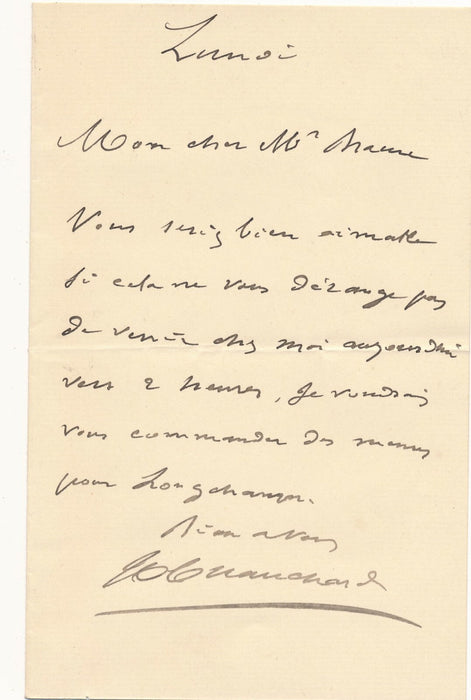 Lundi
Mon cher Mr
Vous seriez bien aimable
si cela ne vous dérange pas
de venir chez moi aujourd'hui
vers 2 heures, Je voudrais
vous commander des menus
pour Longchamps.
Bien a vous